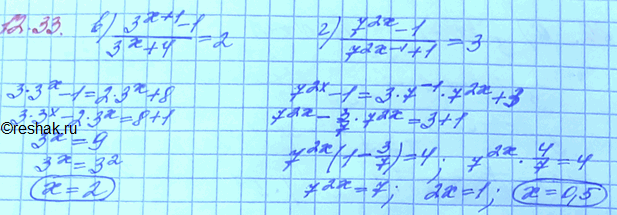 12.33. в) (3^(x+1) - 1)/(3^x + 4) = 2
3·3^x - 1 = 2·3^x + 8
3·3^x - 2·3^x = 8 + 1
3^x = 9
3^x = 3^2
x = 2
г) (7^(2x) - 1)/(7^(2x-1) + 1) = 3
7^(2x) - 1 = 3·7^(-1)·7^(2x) + 3
7^(2x) - 3/7·7^(2x) = 3 + 1
7^(2x)(1 - 3/7) = 4; 7^(2x)·4/7 = 4
7^(2x) = 7; 2x = 1; x = 0,5
©reshak.ru